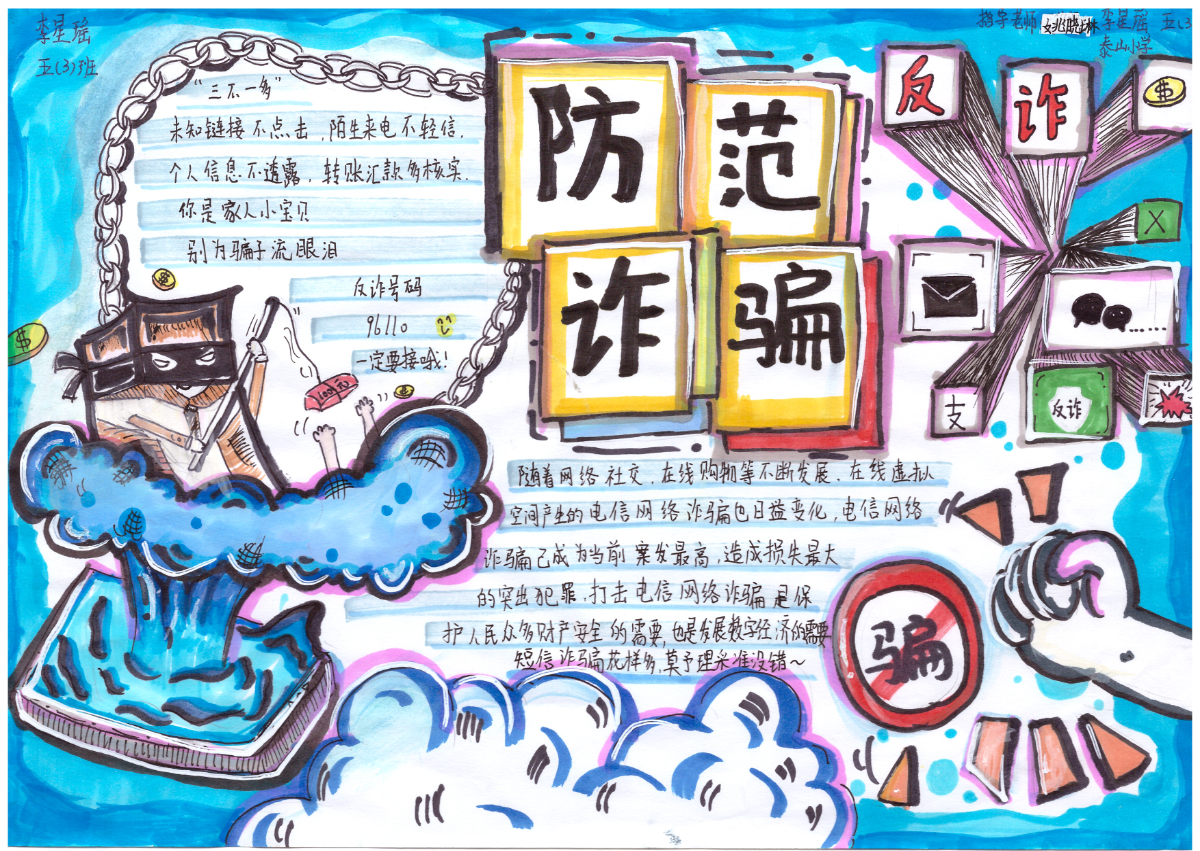 李星瑶
五(3)班
指导老师 姚晓琳 李星瑶 五(3
泰山小学
"三不一多"
未知链接不点击,陌生来电不轻信.
个人信息不透露.转账汇款多核实.
你是家人小宝贝
别为骗子流眼泪
反诈号码
96110
一定要接哦!
100元
防范
诈骗
反诈
$
X
支
反诈
随着网络社交.在线购物等不断发展.在线虚拟
空间产生的电信网络诈骗也日益变化,电信网络
诈骗已成为当前案发最高,造成损失最大
的突出犯罪.打击电信网络诈骗是保
护人民众多财产安全的需要,也是发展数字经济的需要
短信诈骗花样多,莫予理采准没错~
骗